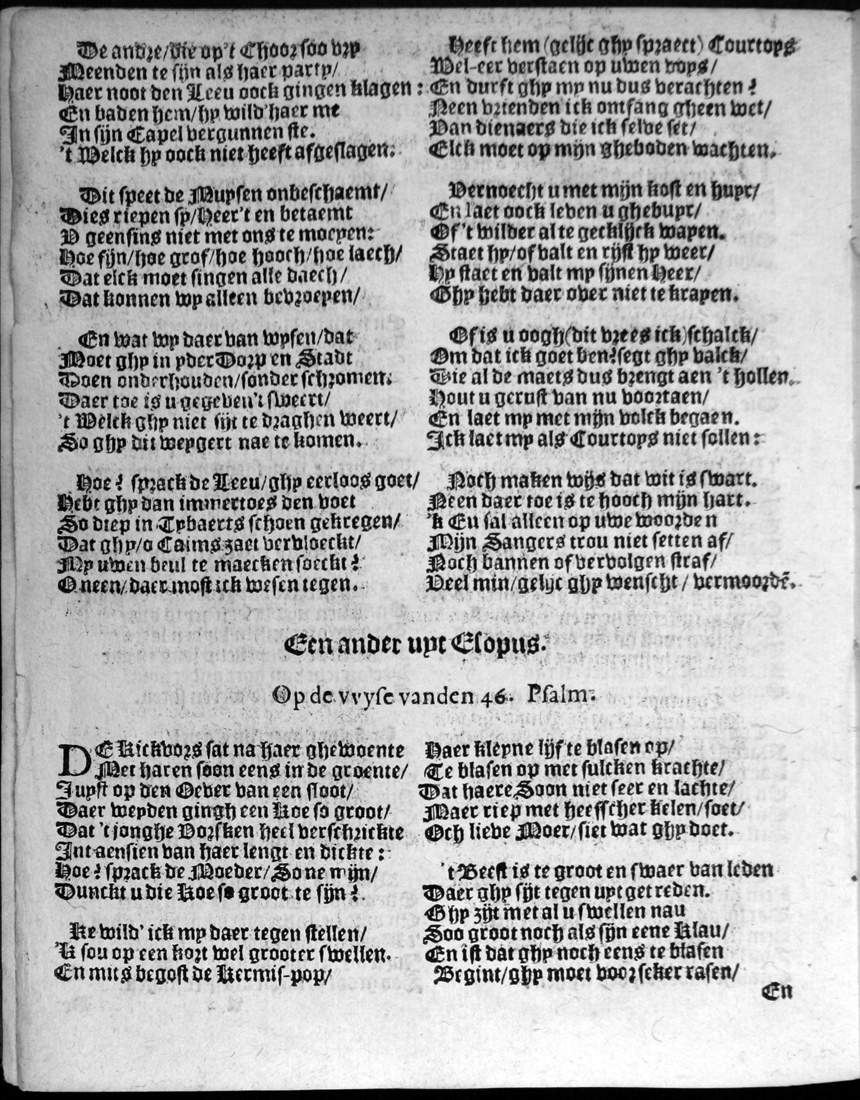 De andre/die op't Choor soo vry
Meenden te sijn als haer party/
Haer noot den Leeu oock gingen klagen:
En baden hem/hy wild'haer me
In sijn Capel vergunnen ste.
't Welck hy oock niet heeft afgeslagen.

Dit speet de Muysen onbeschaemt/
Dies riepen sy/Heer't en betaemt
V geensins niet met ons te moeyen:
Hoe fijn/hoe grof/hoe hooch/hoe laech/
Dat elck moet singen alle daech/
Dat konnen wy alleen bevroeyen/

En wat wy daer van wysen/dat
Moet ghy in yder Dorp en Stadt
Doen onderhouden/sonder schromen.
Daer toe is u gegeven't sweert/
't Welck ghy niet sijt te draghen weert/
So ghy dit weygert nae te komen.

Hoe? sprack de Leeu/ghy eerloos goet/
Hebt ghy dan immertoes den voet
So diep in Tybaerts schoen gekregen/
Dat ghy/o Caims zaet vervloeckt/
My uwen beul te maecken soeckt?
O neen/daer most ick wesen tegen.

Heeft hem (gelijc ghy spraect) Courtoys
Wel-eer verstaen op uwen voys/
En durft ghy my nu dus verachten?
Neen vrienden ick ontfang gheen wet/
Van dienaers die ick selve set/
Elck moet op mijn gheboden wachten.

Vernoecht u met mijn kost en huyr/
En laet oock leven u ghebuyr/
Of't wilder al te gecklijck wapen.
Staet hy/of valt en rijst hy weer/
Hy staet en valt my sijnen Heer/
Ghy hebt daer over niet te krapen.

Of is u oogh(dit vrees ick)schalck/
Om dat ick goet ben?segt ghy valck/
Die al de maets dus brengt aen 't hollen.
Hout u gerust van nu voortaen/
En laet my met mijn volck begaen.
Ick laet my als Courtoys niet sollen:

Noch maken wijs dat wit is swart.
Neen daer toe is te hooch mijn hart.
'k En sal alleen op uwe woorden
Mijn Sangers trou niet setten af/
Noch bannen of vervolgen straf/
Veel min/gelijc ghy wenscht / vermoordē.

Een ander uyt Esopus.

Op de vvyse vanden 46. Psalm.

DE Kickvors sat na haer ghewoente
Met haren soon eens in de groente/
Juyst op den Oever van een sloot/
Daer weyden gingh een Koe so groot/
Dat 't jonghe Vorsken heel verschrickte
Int aensien van haer lengt en dickte:
Hoe? sprack de Moeder/Sone mijn/
Dunckt u die Koe so groot te sijn?

Ke wild' ick my daer tegen stellen/
'K sou op een kort wel grooter swellen.
En mits begost de Kermis-pop/

Haer kleyne lijf te blasen op/
Te blasen op met sulcken krachte/
Dat haere Soon niet seer en lachte/
Maer riep met heesscher kelen/soet/
Och lieve Moer/siet wat ghy doet.

't Beest is te groot en swaer van leden
Daer ghy sijt tegen uyt getreden.
Ghy zijt met al u swellen nau
Soo groot noch als sijn eene Klau/
En ist dat ghy noch eens te blasen
Begint/ghy moet voorseker rasen/
En